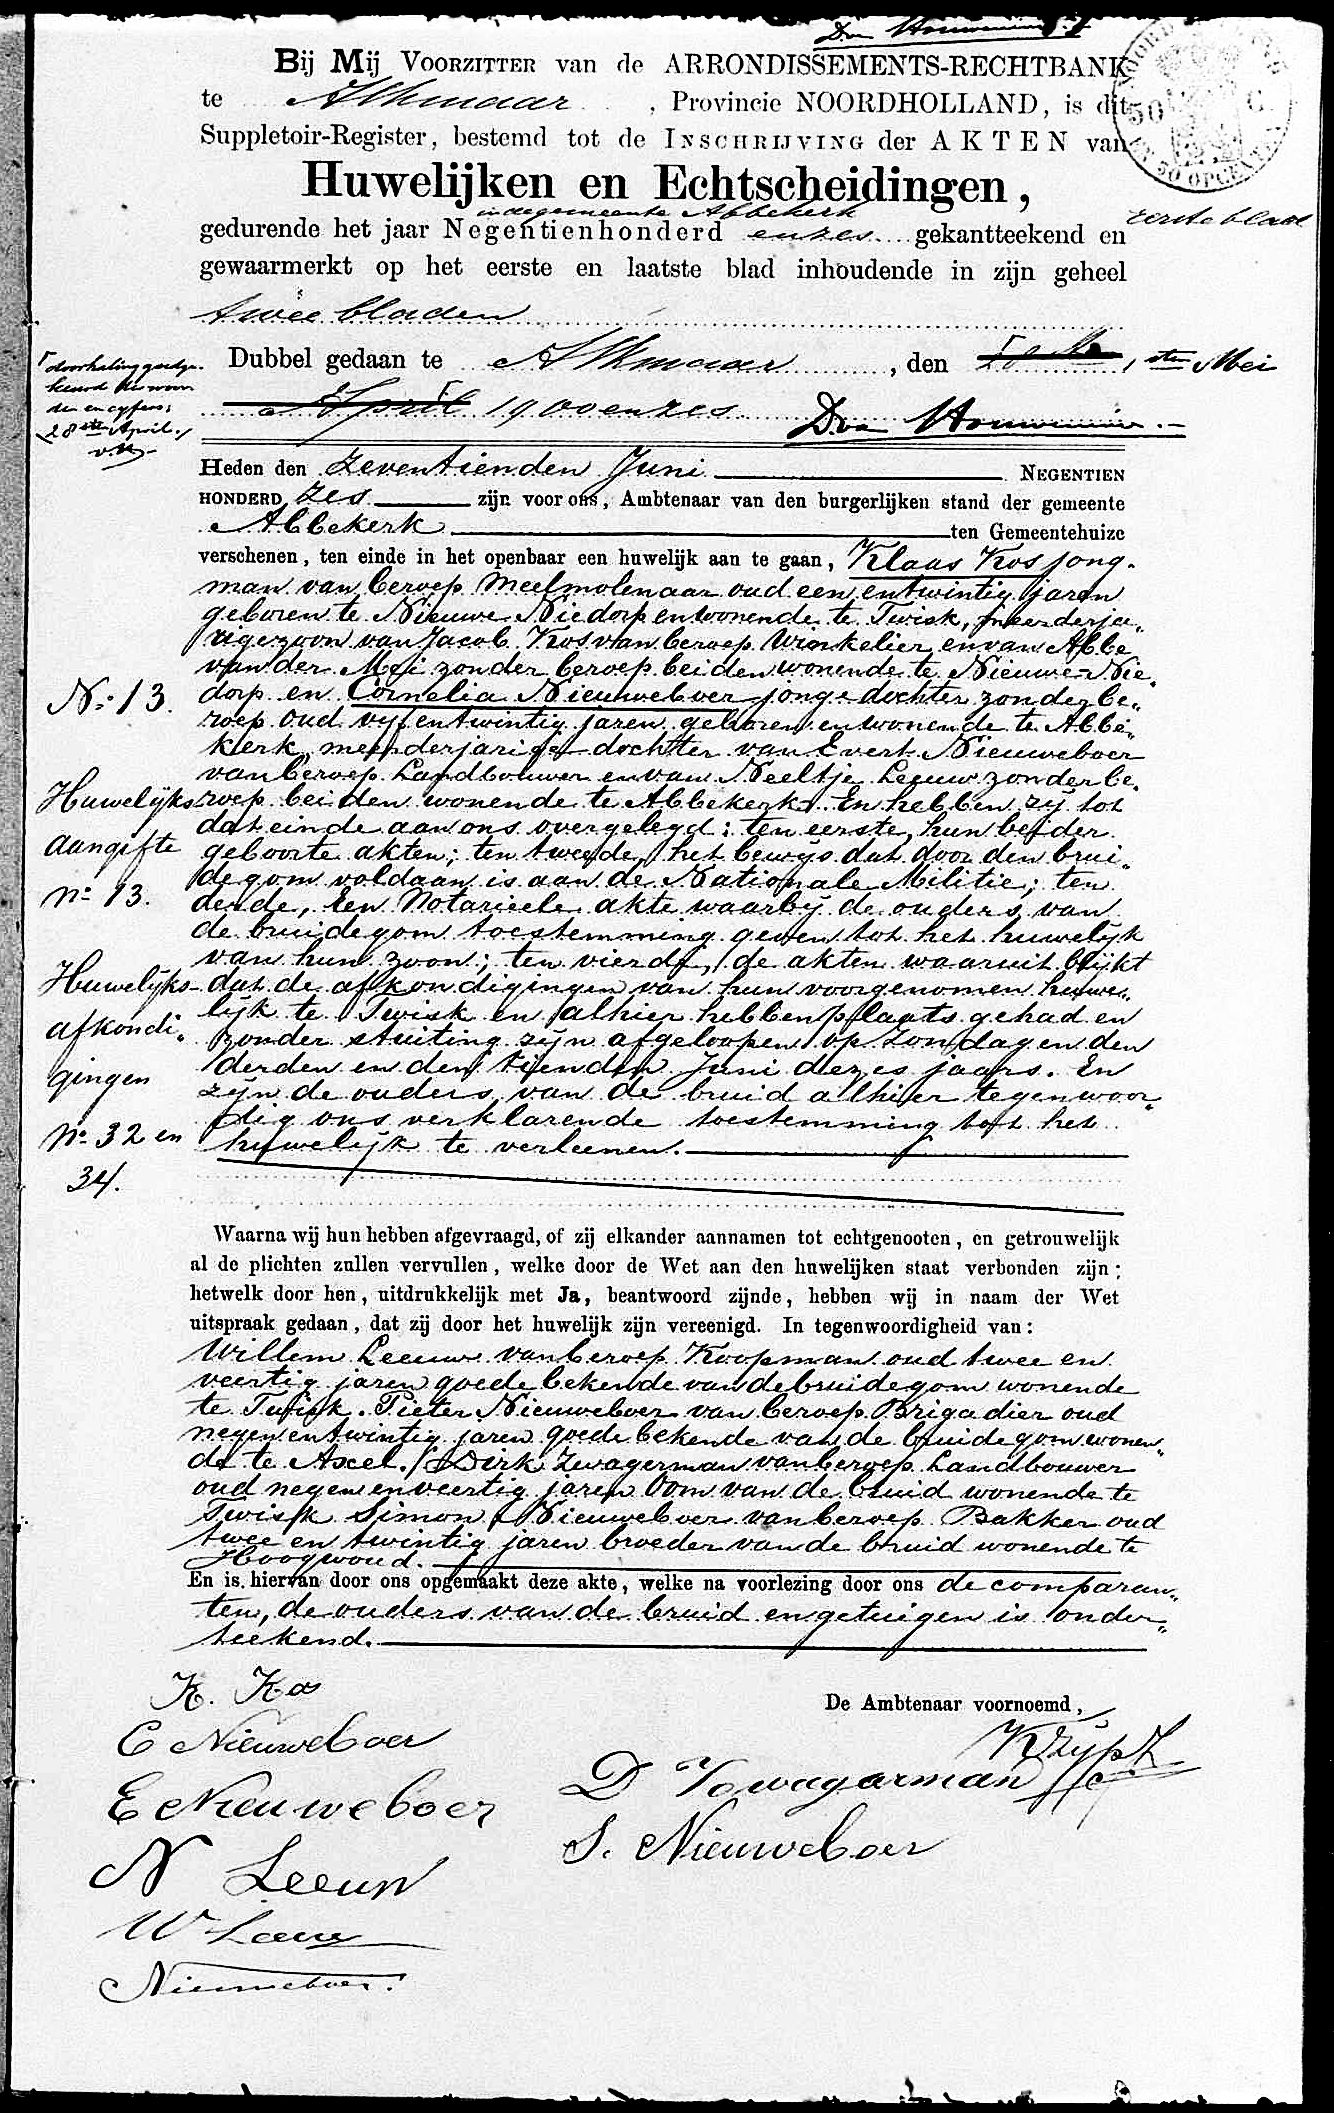 Bij Mij Voorzitter van de ARRONDISSEMENTS-RECHTBANK
te Alkmaar, Provincie NOORDHOLLAND, is dit
Suppletoir-Register, bestemd tot de Inschrijving der AKTEN van
Huwelijken en Echtscheidingen,
in de gemeente Abbekerk
eerste blad
gedurende het jaar Negentienhonderd en zes gekantteekend en
gewaarmerkt op het eerste en laatste blad inhoudende in zijn geheel
twee bladen
Dubbel gedaan te Alkmaar, den 1sten Mei
April 1900 en zes
28ste April
Heden den zeventienden Juni Negentien
honderd zes zijn voor ons, Ambtenaar van den burgerlijken stand der gemeente
Abbekerk ten Gemeentehuize
verschenen, ten einde in het openbaar een huwelijk aan te gaan, Klaas Kos jong-
man van beroep Meelmolenaar oud een en twintig jaren
geboren te Nieuwe Niedorp en wonende te Twisk, meerderja„
rige zoon van Jacob Kos van beroep Winkelier en van Abbe
van der Meij zonder beroep beiden wonende te Nieuwe Nie„
No 13. dorp en Cornelia Nieuweboer jonge dochter zonder be„
roep oud vyf en twintig jaren geboren en wonende te Abbe„
kerk, meerderjarige dochter van Evert Nieuweboer
van beroep Landbouwer en van Neeltje Leeuw zonder be„
Huwelijks roep beiden wonende te Abbekerk. En hebben zij tot
dat einde aan ons overgelegd: ten eerste, hun beider
aangifte geboorte akten; ten tweede, het bewijs dat door den brui„
degom voldaan is aan de Nationale Militie; ten
no 13. derde, een Notarieele akte waarbij de ouders van
de bruidegom toestemming geven tot het huwelijk
van hun zoon; ten vierde, de akten waaruit blijkt
Huwelijks- dat de afkondigingen van hun voorgenomen huwe„
lijk te Twisk en alhier hebben plaats gehad en
afkondi„ zonder stuiting zijn afgeloopen op Zondagen den
derden en den tienden Juni dezes jaars. En
gingen zijn de ouders van de bruid alhier tegenwoor„
dig ons verklarende toestemming tot het
no 32 en huwelijk te verleenen.
34.
Waarna wij hun hebben afgevraagd, of zij elkander aannamen tot echtgenooten, en getrouwelijk
al de plichten zullen vervullen, welke door de Wet aan den huwelijken staat verbonden zijn;
hetwelk door hen, uitdrukkelijk met Ja, beantwoord zijnde, hebben wij in naam der Wet
uitspraak gedaan, dat zij door het huwelijk zijn vereenigd. In tegenwoordigheid van:
Willem Leeuw van beroep Koopman oud twee en
veertig jaren goede bekende van de bruidegom wonende
te Twisk. Pieter Nieuweboer van beroep Brigadier oud
negen en twintig jaren goede bekende van de bruidegom wonen„
de te Axel. Dirk Zwagerman van beroep Landbouwer
oud negen en veertig jaren Oom van de bruid wonende te
Twisk Simon Nieuweboer van beroep Bakker oud
twee en twintig jaren broeder van de bruid wonende te
Hoogwoud.
En is hiervan door ons opgemaakt deze akte, welke na voorlezing door ons de comparan„
ten, de ouders van de bruid en getuigen is onder„
teekend.
K. Kos
De Ambtenaar voornoemd,
C Nieuweboer
K Zijp
D Zwagerman
E Nieuweboer
S. Nieuweboer
N Leeuw
W Leeuw
Nieuweboer.